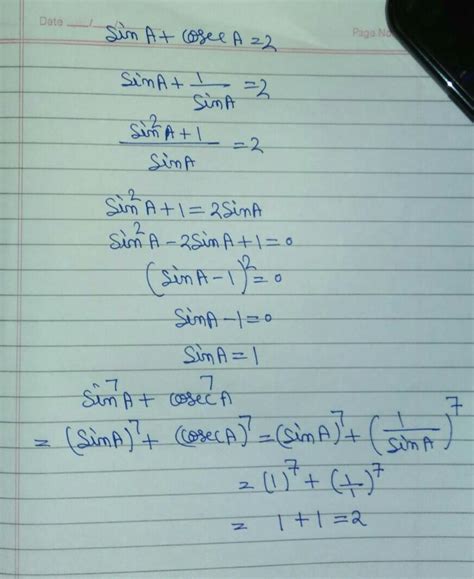 Date __/__/__
Page No
sin A + cosec A = 2
sin A + 1/sin A = 2
(sin²A + 1)/sin A = 2
sin²A + 1 = 2 sin A
sin²A - 2 sin A + 1 = 0
(sin A - 1)² = 0
sin A - 1 = 0
sin A = 1
sin⁷A + cosec⁷A
= (sin A)⁷ + (cosec A)⁷ = (sin A)⁷ + (1/sin A)⁷
= (1)⁷ + (1/1)⁷
= 1 + 1 = 2